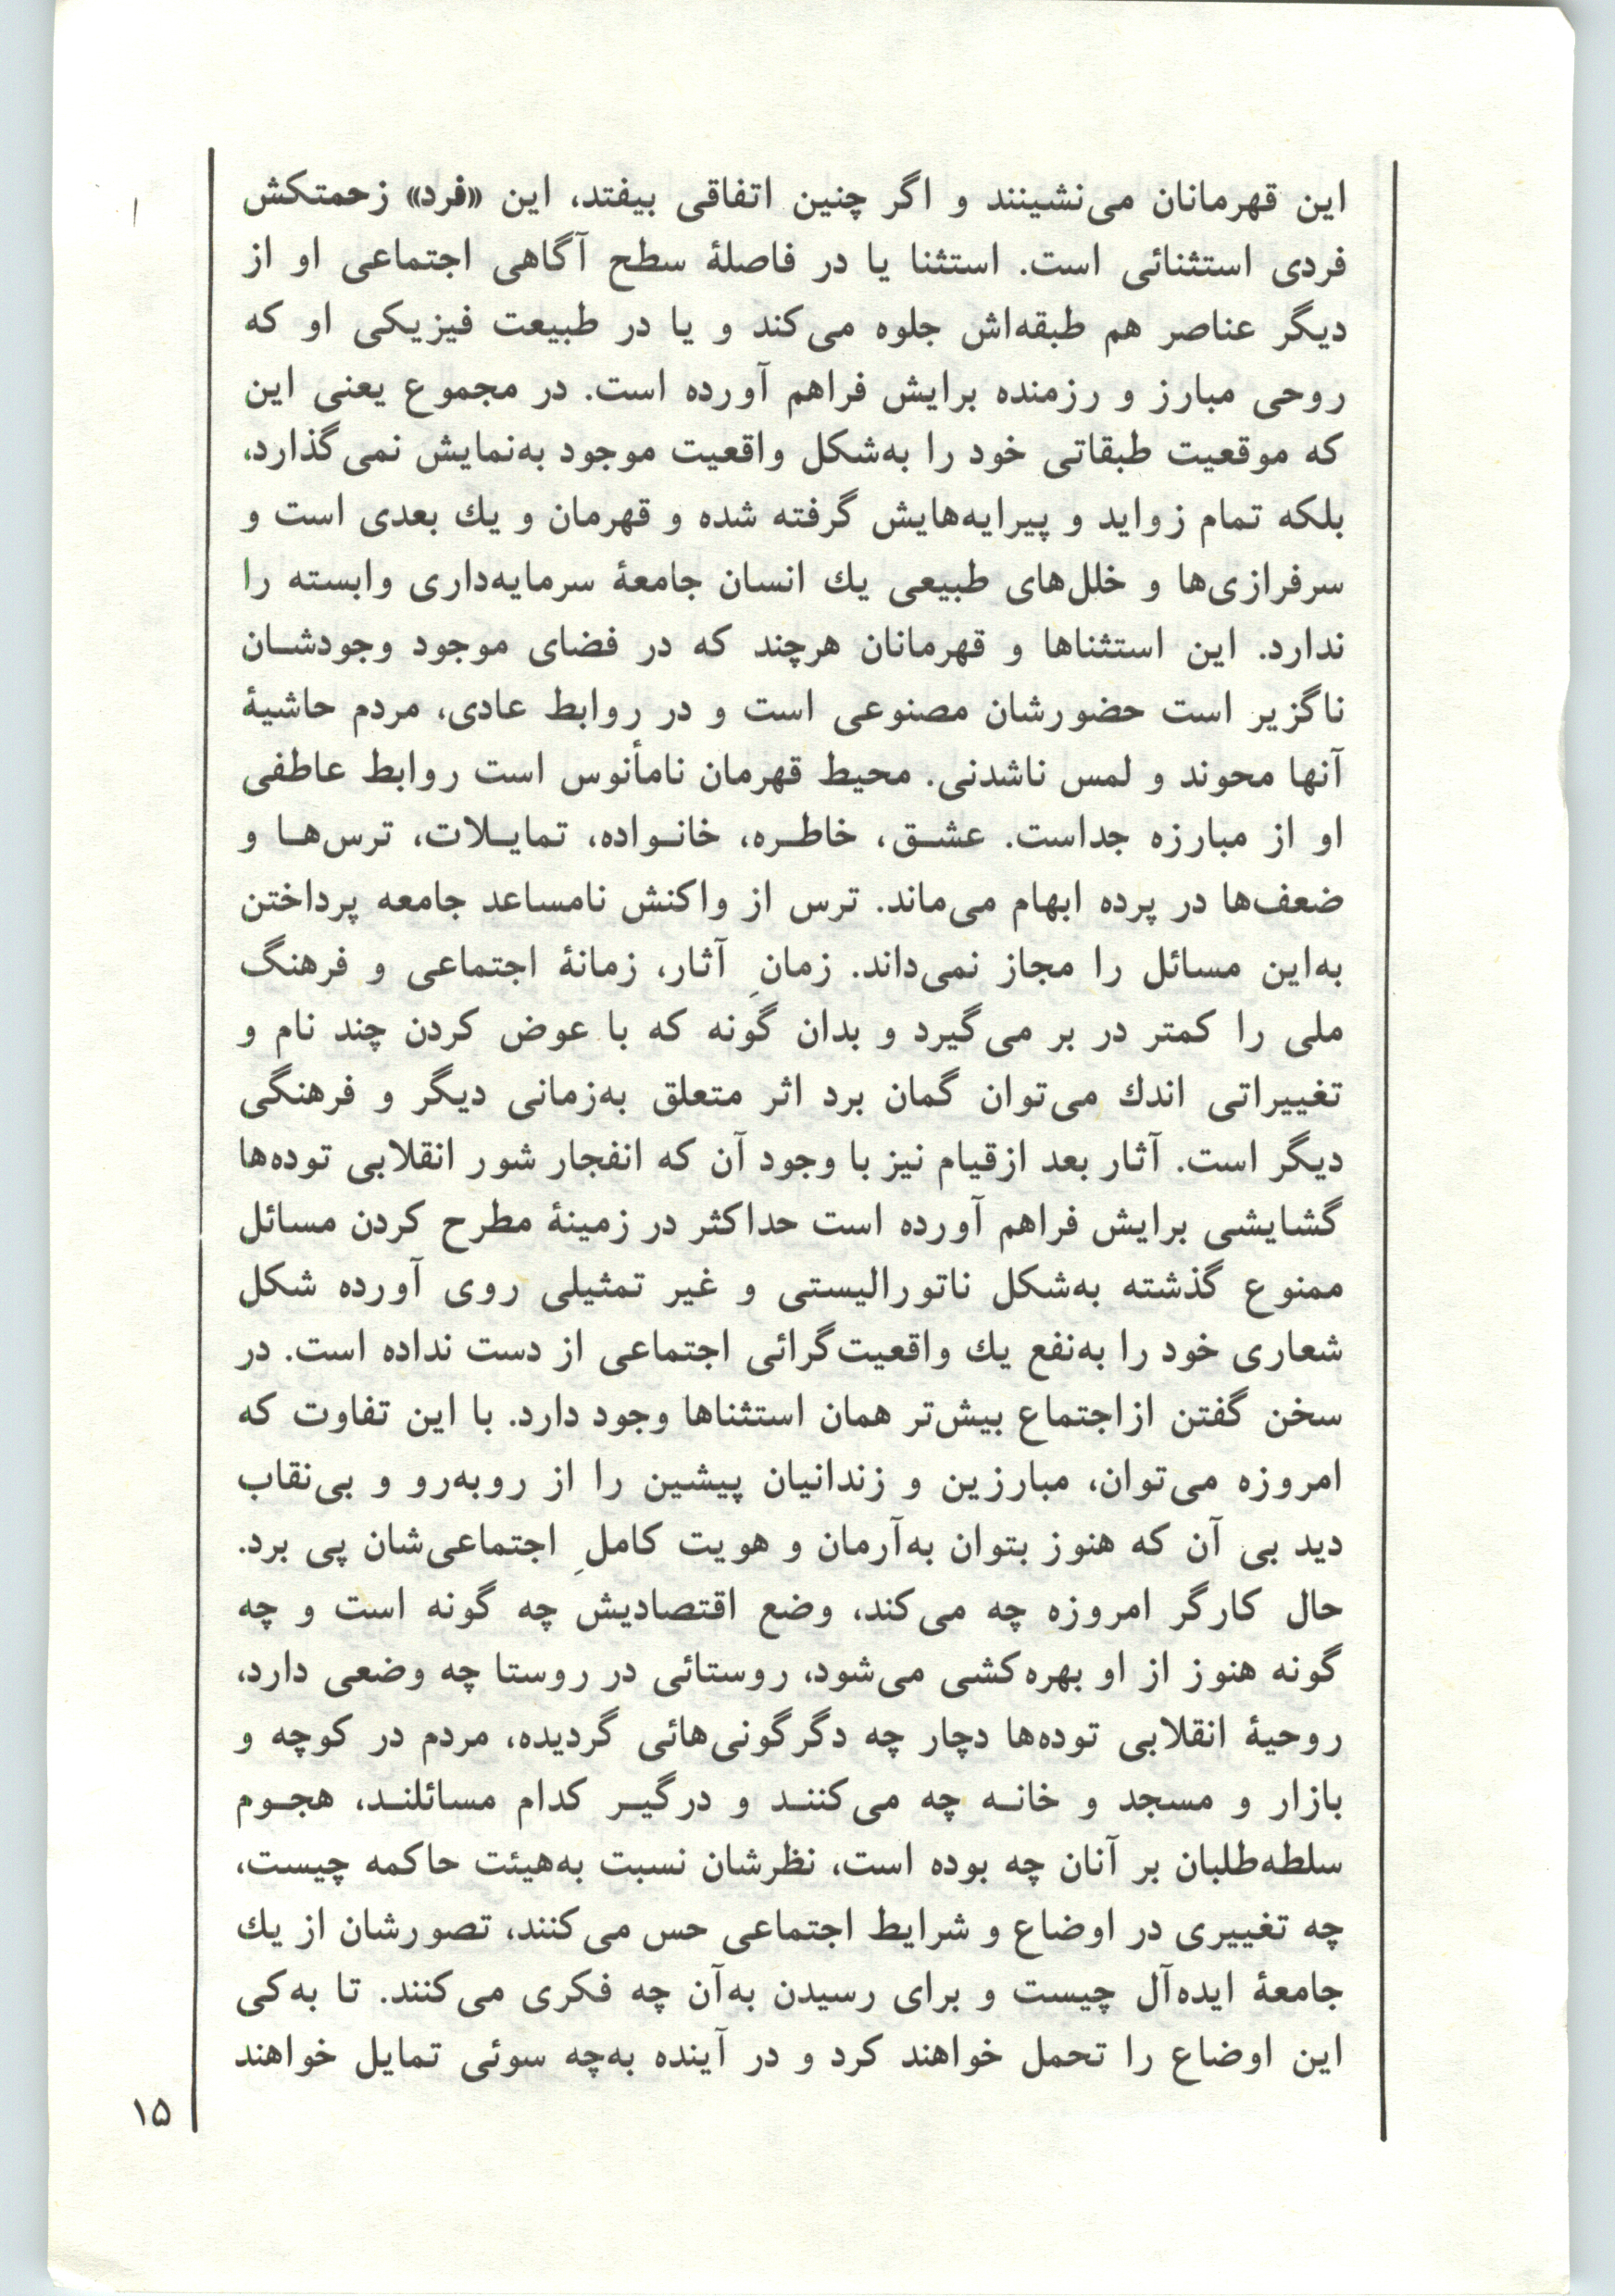 این قهرمانان می‌نشینند و اگر چنین اتفاقی بیفتد، این «فرد» زحمتکش
فردی استثنائی است. استثنا یا در فاصلهٔ سطح آگاهی اجتماعی او از
دیگر عناصر هم طبقه‌اش جلوه می‌کند و یا در طبیعت فیزیکی او که
روحی مبارز و رزمنده برایش فراهم آورده است. در مجموع یعنی این
که موقعیت طبقاتی خود را به‌شکل واقعیت موجود به‌نمایش نمی‌گذارد،
بلکه تمام زواید و پیرایه‌هایش گرفته شده و قهرمان و یك بعدی است و
سرفرازی‌ها و خلل‌های طبیعی یك انسان جامعهٔ سرمایه‌داری وابسته را
ندارد. این استثناها و قهرمانان هرچند که در فضای موجود وجودشـان
ناگزیر است حضورشان مصنوعی است و در روابط عادی، مردم حاشیهٔ
آنها محوند و لمس ناشدنی. محیط قهرمان نامأنوس است روابط عاطفی
او از مبارزه جداست. عشـق، خاطـره، خانـواده، تمایـلات، ترس‌هـا و
ضعف‌ها در پرده ابهام می‌ماند. ترس از واکنش نامساعد جامعه پرداختن
به‌این مسائل را مجاز نمی‌داند. زمانِ آثار، زمانهٔ اجتماعی و فرهنگ
ملی را کمتر در بر می‌گیرد و بدان گونه که با عوض کردن چند نام و
تغییراتی اندك می‌توان گمان برد اثر متعلق به‌زمانی دیگر و فرهنگی
دیگر است. آثار بعد ازقیام نیز با وجود آن که انفجار شور انقلابی توده‌ها
گشایشی برایش فراهم آورده است حداکثر در زمینهٔ مطرح کردن مسائل
ممنوع گذشته به‌شکل ناتورالیستی و غیر تمثیلی روی آورده شکل
شعاری خود را به‌نفع یك واقعیت‌گرائی اجتماعی از دست نداده است. در
سخن گفتن ازاجتماع بیش‌تر همان استثناها وجود دارد. با این تفاوت که
امروزه می‌توان، مبارزین و زندانیان پیشین را از روبه‌رو و بی‌نقاب
دید بی آن که هنوز بتوان به‌آرمان و هویت کاملِ اجتماعی‌شان پی برد.
حال کارگر امروزه چه می‌کند، وضع اقتصادیش چه گونه است و چه
گونه هنوز از او بهره‌کشی می‌شود، روستائی در روستا چه وضعی دارد،
روحیهٔ انقلابی توده‌ها دچار چه دگرگونی‌هائی گردیده، مردم در کوچه و
بازار و مسجد و خانـه چه می‌کننـد و درگیـر کدام مسائلنـد، هجـوم
سلطه‌طلبان بر آنان چه بوده است، نظرشان نسبت به‌هیئت حاکمه چیست،
چه تغییری در اوضاع و شرایط اجتماعی حس می‌کنند، تصورشان از یك
جامعهٔ ایده‌آل چیست و برای رسیدن به‌آن چه فکری می‌کنند. تا به‌کی
این اوضاع را تحمل خواهند کرد و در آینده به‌چه سوئی تمایل خواهند
۱۵